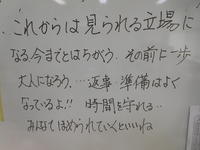 これからは見られる立場に
なる、今までとはちがう、その前に一歩
大人になろう、…返事・準備はよく
なっているよ!! 時間を守れる‥
みんなでほめられていくといいね